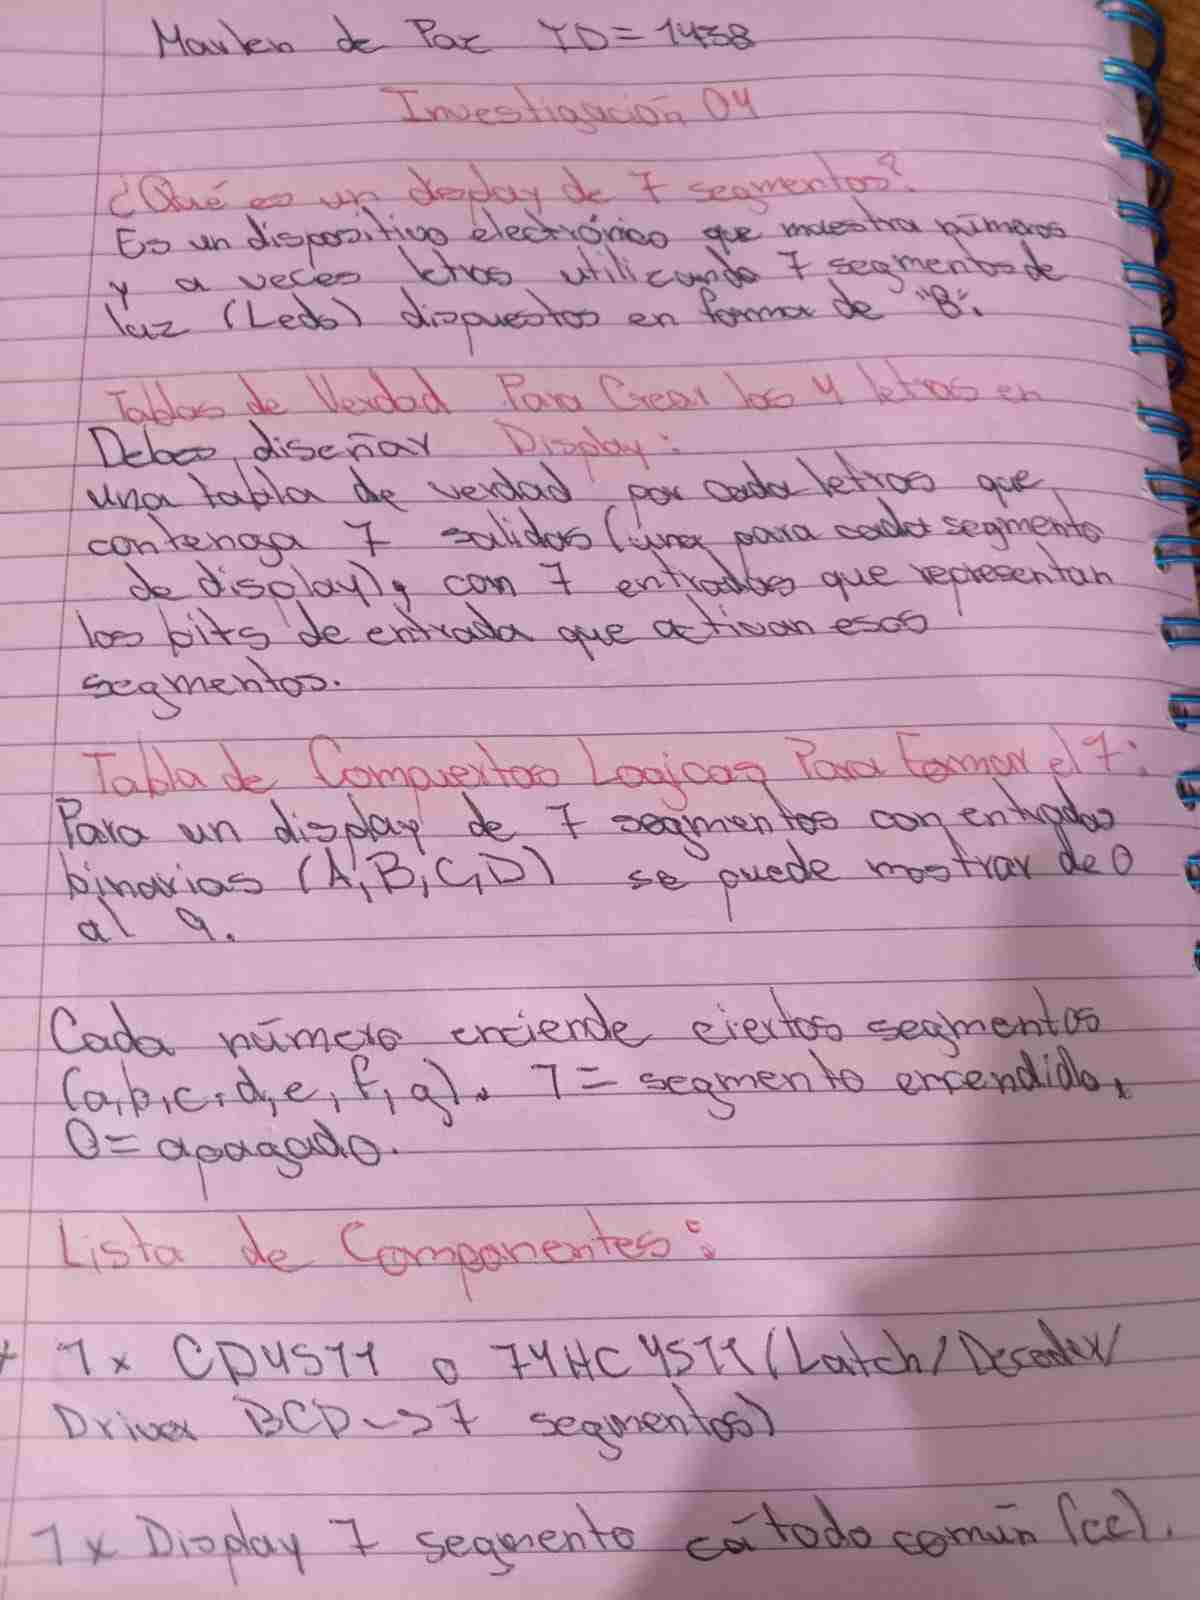 Marlen de Paz ID=1438
Investigación 04
¿Qué es un display de 7 segmentos?
Es un dispositivo electrónico que muestra números
y a veces letras utilizando 7 segmentos de
luz (Leds) dispuestos en forma de "8".
Tablas de Verdad Para Crear las 4 letras en
Display:
Debes diseñar
una tabla de verdad por cada letras que
contenga 7 salidas (una para cada segmento
de display), con 7 entradas que representan
los bits de entrada que activan esos
segmentos.
Tabla de Compuertas Logicas Para Formar el 9:
Para un display de 7 segmentos con entradas
binarias (A,B,C,D) se puede mostrar de 0
al 9.
Cada número enciende ciertos segmentos
(a,b,c,d,e,f,g). 1= segmento encendido,
0= apagado.
Lista de Componentes:
1x CD4511 o 74HC4511 (Latch/Decoder/
Driver BCD->7 segmentos)
1x Display 7 segmento cátodo común (cc).